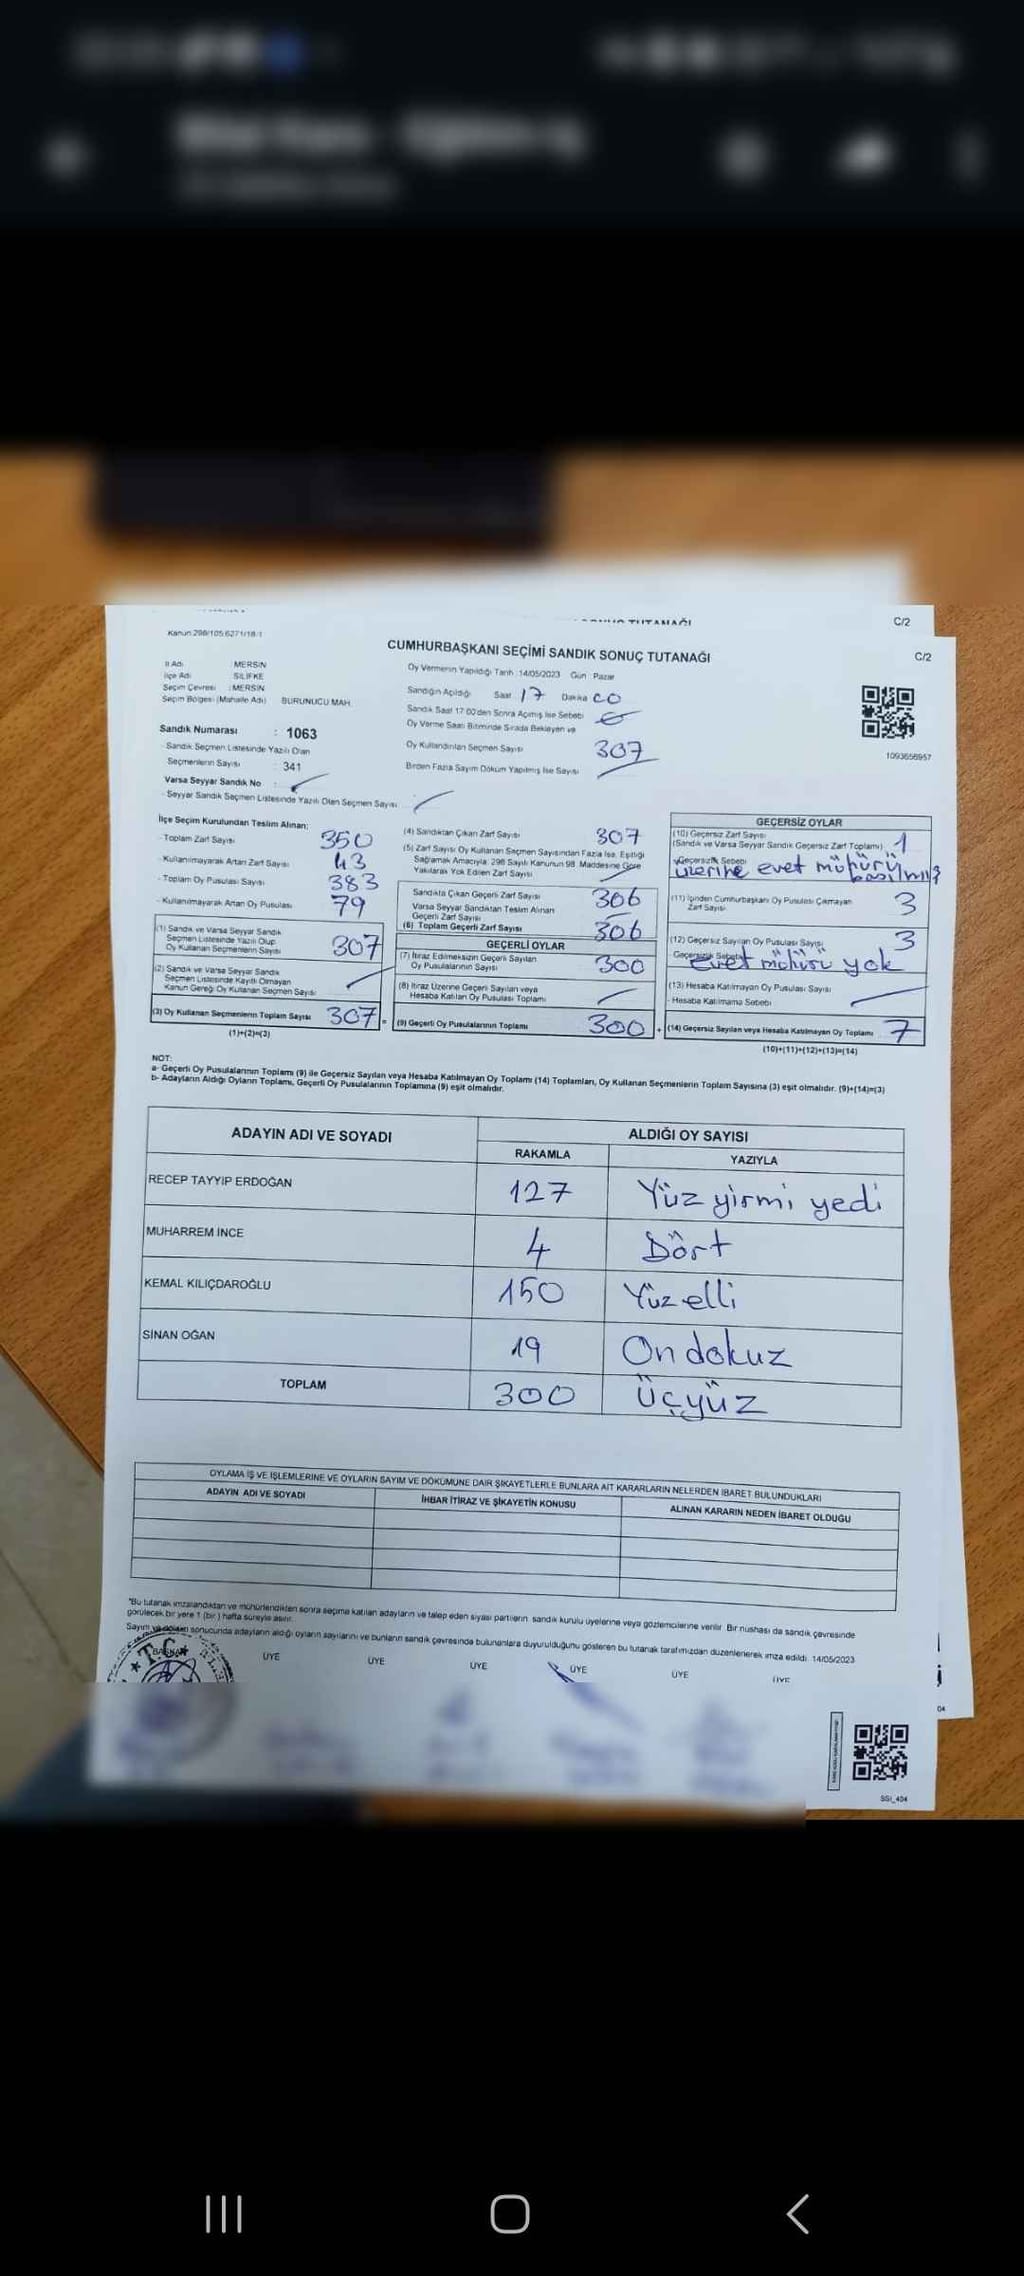 C/2
Kanun:298/105;6271/18/1
CUMHURBAŞKANI SEÇİMİ SANDIK SONUÇ TUTANAĞI
C/2
İl Adı : MERSİN
İlçe Adı : SİLİFKE
Seçim Çevresi : MERSİN
Seçim Bölgesi (Mahalle Adı) BURUNUCU MAH.
Oy Vermenin Yapıldığı Tarih :14/05/2023 Gün Pazar
Sandığın Açıldığı Saat 17 Dakika 00
Sandık Saat 17:00'den Sonra Açımış İse Sebebi
Oy Verme Saati Bitiminde Sırada Bekleyen ve
Oy Kullandırılan Seçmen Sayısı 307
Birden Fazla Sayım Döküm Yapılmış İse Sayısı
1093656957
Sandık Numarası : 1063
- Sandık Seçmen Listesinde Yazılı Olan
Seçmenlerin Sayısı : 341
Varsa Seyyar Sandık No :
- Seyyar Sandık Seçmen Listesinde Yazılı Olan Seçmen Sayısı
İlçe Seçim Kurulundan Teslim Alınan:
- Toplam Zarf Sayısı 350
- Kullanılmayarak Artan Zarf Sayısı 43
- Toplam Oy Pusulası Sayısı 383
- Kullanılmayarak Artan Oy Pusulası 79
(1) Sandık ve Varsa Seyyar Sandık
Seçmen Listesinde Yazılı Olup
Oy Kullanan Seçmenlerin Sayısı 307
(2) Sandık ve Varsa Seyyar Sandık
Seçmen Listesinde Kayıtlı Olmayan
Kanun Gereği Oy Kullanan Seçmen Sayısı
(3) Oy Kullanan Seçmenlerin Toplam Sayısı 307 =
(1)+(2)=(3)
(4) Sandıktan Çıkan Zarf Sayısı 307
(5) Zarf Sayısı Oy Kullanan Seçmen Sayısından Fazla İse, Eşitliği
Sağlamak Amacıyla: 298 Sayılı Kanunun 98. Maddesine Göre
Yakılarak Yok Edilen Zarf Sayısı
Sandıkta Çıkan Geçerli Zarf Sayısı 306
Varsa Seyyar Sandıktan Teslim Alınan
Geçerli Zarf Sayısı
(6) Toplam Geçerli Zarf Sayısı 306
GEÇERLİ OYLAR
(7) İtiraz Edilmeksizin Geçerli Sayılan
Oy Pusulalarının Sayısı 300
(8) İtiraz Üzerine Geçerli Sayılan veya
Hesaba Katılan Oy Pusulası Toplamı
(9) Geçerli Oy Pusulalarının Toplamı 300 +
GEÇERSİZ OYLAR
(10) Geçersiz Zarf Sayısı
(Sandık ve Varsa Seyyar Sandık Geçersiz Zarf Toplamı) 1
Geçersizlik Sebebi
üzerine evet mühürü
basılmış
(11) İçinden Cumhurbaşkanı Oy Pusulası Çıkmayan
Zarf Sayısı 3
(12) Geçersiz Sayılan Oy Pusulası Sayısı 3
Geçersizlik Sebebi
evet mühürü yok
(13) Hesaba Katılmayan Oy Pusulası Sayısı
- Hesaba Katılmama Sebebi
(14) Geçersiz Sayılan veya Hesaba Katılmayan Oy Toplamı 7
(10)+(11)+(12)+(13)=(14)
NOT:
a- Geçerli Oy Pusulalarının Toplamı (9) ile Geçersiz Sayılan veya Hesaba Katılmayan Oy Toplamı (14) Toplamları, Oy Kullanan Seçmenlerin Toplam Sayısına (3) eşit olmalıdır. (9)+(14)=(3)
b- Adayların Aldığı Oyların Toplamı, Geçerli Oy Pusulalarının Toplamına (9) eşit olmalıdır.
ADAYIN ADI VE SOYADI ALDIĞI OY SAYISI
RAKAMLA YAZIYLA
RECEP TAYYİP ERDOĞAN 127 Yüz yirmi yedi
MUHARREM İNCE 4 Dört
KEMAL KILIÇDAROĞLU 150 Yüz elli
SİNAN OĞAN 19 On dokuz
TOPLAM 300 Üçyüz
OYLAMA İŞ VE İŞLEMLERİNE VE OYLARIN SAYIM VE DÖKÜMÜNE DAİR ŞİKAYETLERLE BUNLARA AİT KARARLARIN NELERDEN İBARET BULUNDUKLARI
ADAYIN ADI VE SOYADI İHBAR İTİRAZ VE ŞİKAYETİN KONUSU ALINAN KARARIN NEDEN İBARET OLDUĞU
*Bu tutanak imzalandıktan ve mühürlendikten sonra seçime katılan adayların ve talep eden siyasi partilerin sandık kurulu üyelerine veya gözlemcilerine verilir. Bir nushası da sandık çevresinde
görülecek bir yere 1 (bir ) hafta süreyle asılır.
Sayım ve döküm sonucunda adayların aldığı oyların sayılarını ve bunların sandık çevresinde bulunanlara duyurulduğunu gösteren bu tutanak tarafımızdan düzenlenerek imza edildi. 14/05/2023
T.C.
BAŞKAN ÜYE ÜYE ÜYE ÜYE ÜYE ÜYE
04
SSI_404